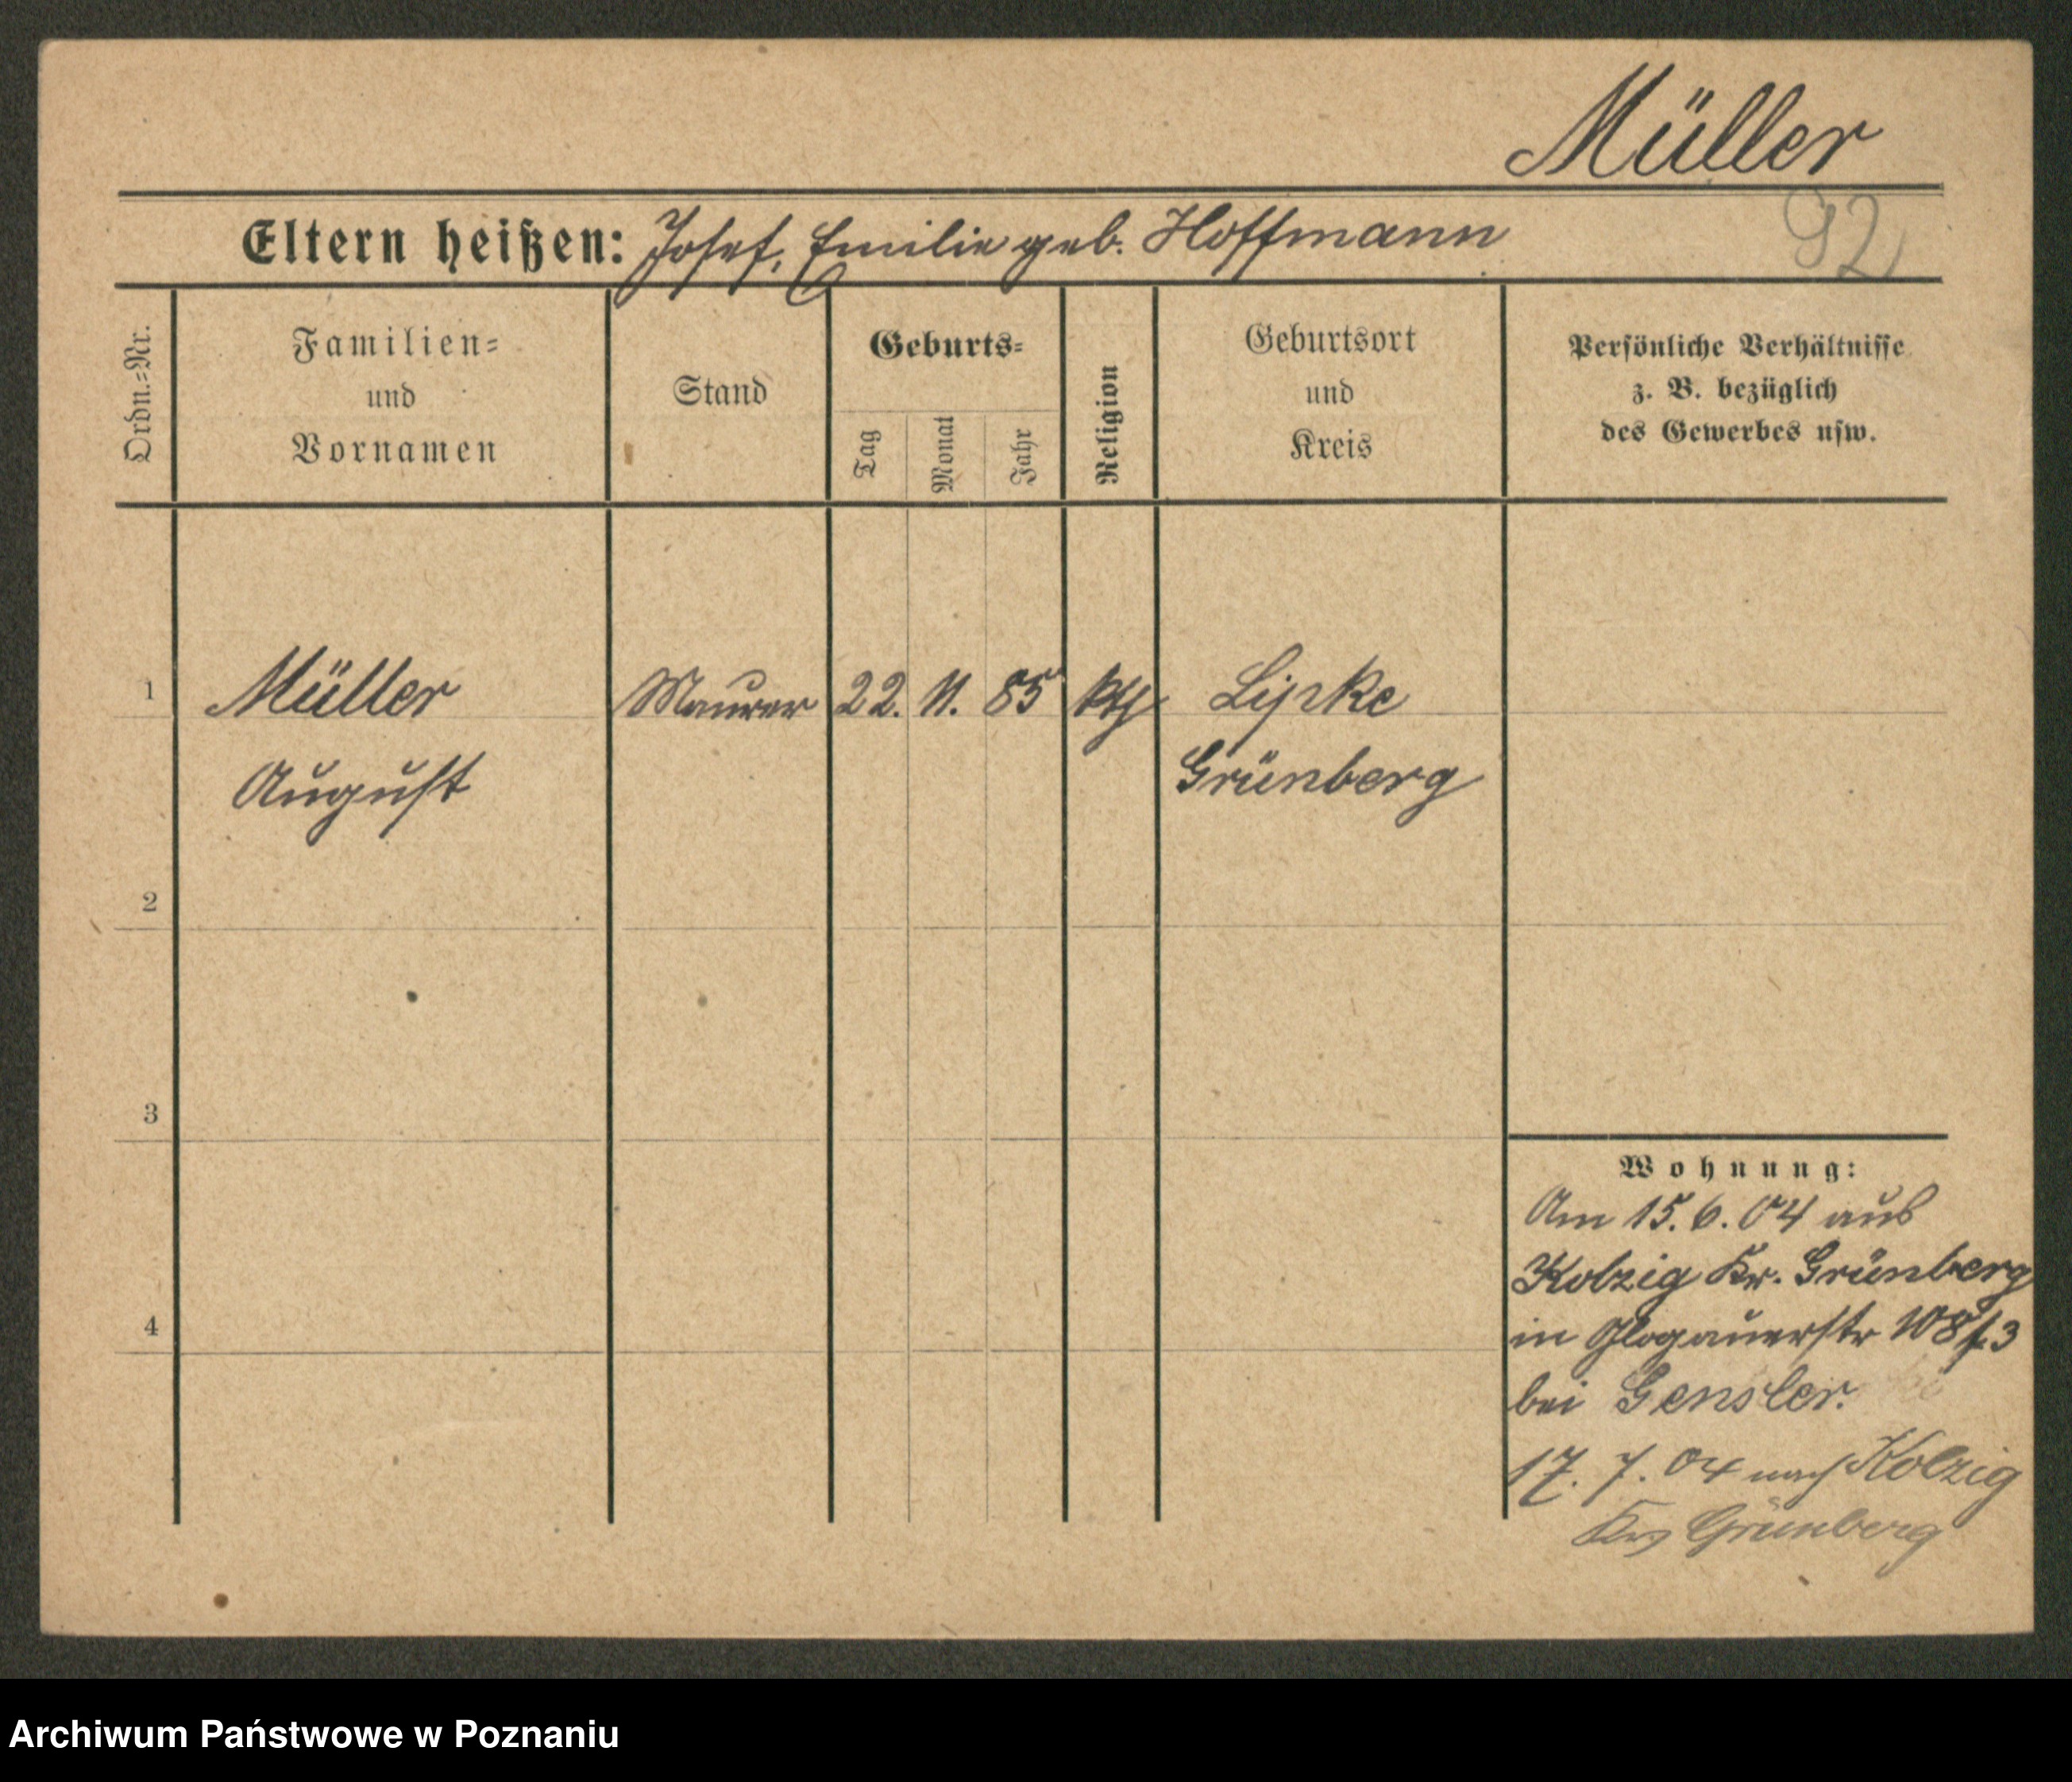 Müller
92
Eltern heißen: Josef, Emilie geb. Hoffmann
Ordn.=Nr.
Familien=
und
Vornamen
Stand
Geburts=
Tag
Monat
Jahr
Religion
Geburtsort
und
Kreis
Persönliche Verhältnisse
z. B. bezüglich
des Gewerbes usw.
1 Müller Maurer 22. 11. 85 kth Lipke
August Grünberg
2
3
4
Wohnung:
Am 15. 6. 04 aus
Kolzig Kr. Grünberg
in Glogauerstr 108 f. 3
bei Gensler.
17. 7. 04 nach Kolzig
Krs Grünberg
Archiwum Państwowe w Poznaniu